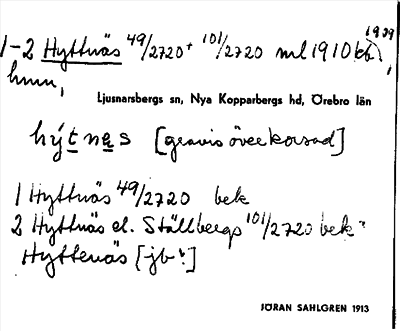 1-2 Hyttnäs 49/2720 + 101/2720 ml 1910 kb,
1909
hmn,
Ljusnarsbergs sn, Nya Kopparbergs hd, Örebro län
hýtnas [gravis överkorsad]
1 Hyttnäs 49/2720 bek
2 Hyttnäs el. Ställbergs 101/2720 bek
Hyttenäs [jb!]
JÖRAN SAHLGREN 1913